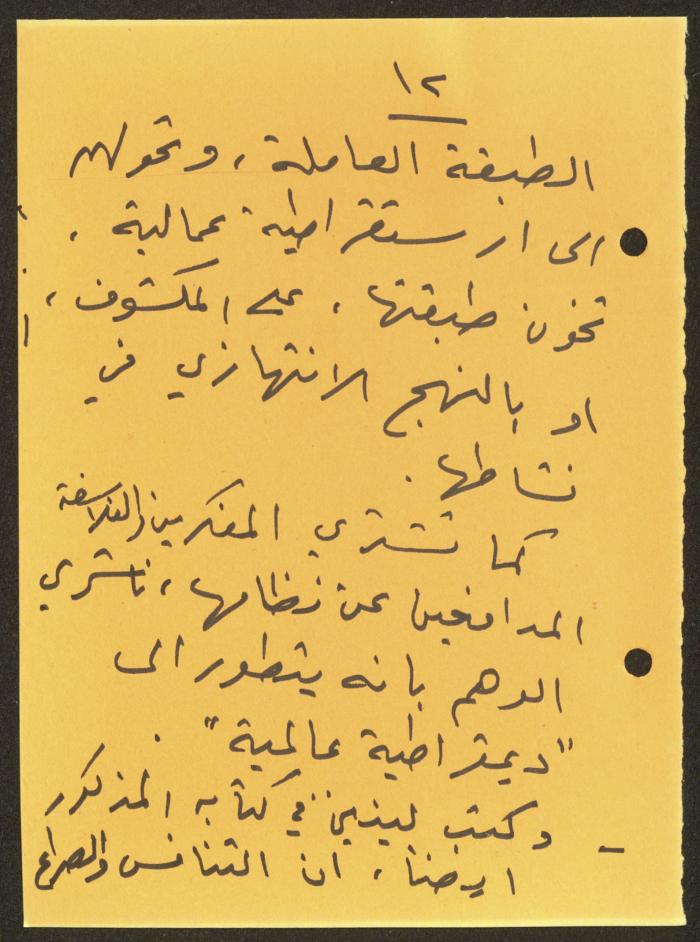 ١٢
الطبقة العاملة، وتحولهن
الى ارستقراطية عمالية،
تخون طبقتها، على المكشوف،
او بالنهج الانتهازي في
نشاطها.
كما تشتري المفكرين والفلاسفة
المدافعين عن نظامها، ناشري
الوهم بانه يتطور الى
"ديمقراطية عالمية".
- وكتب لينين في كتابه المذكور
ايضا، ان التنافس والصراع